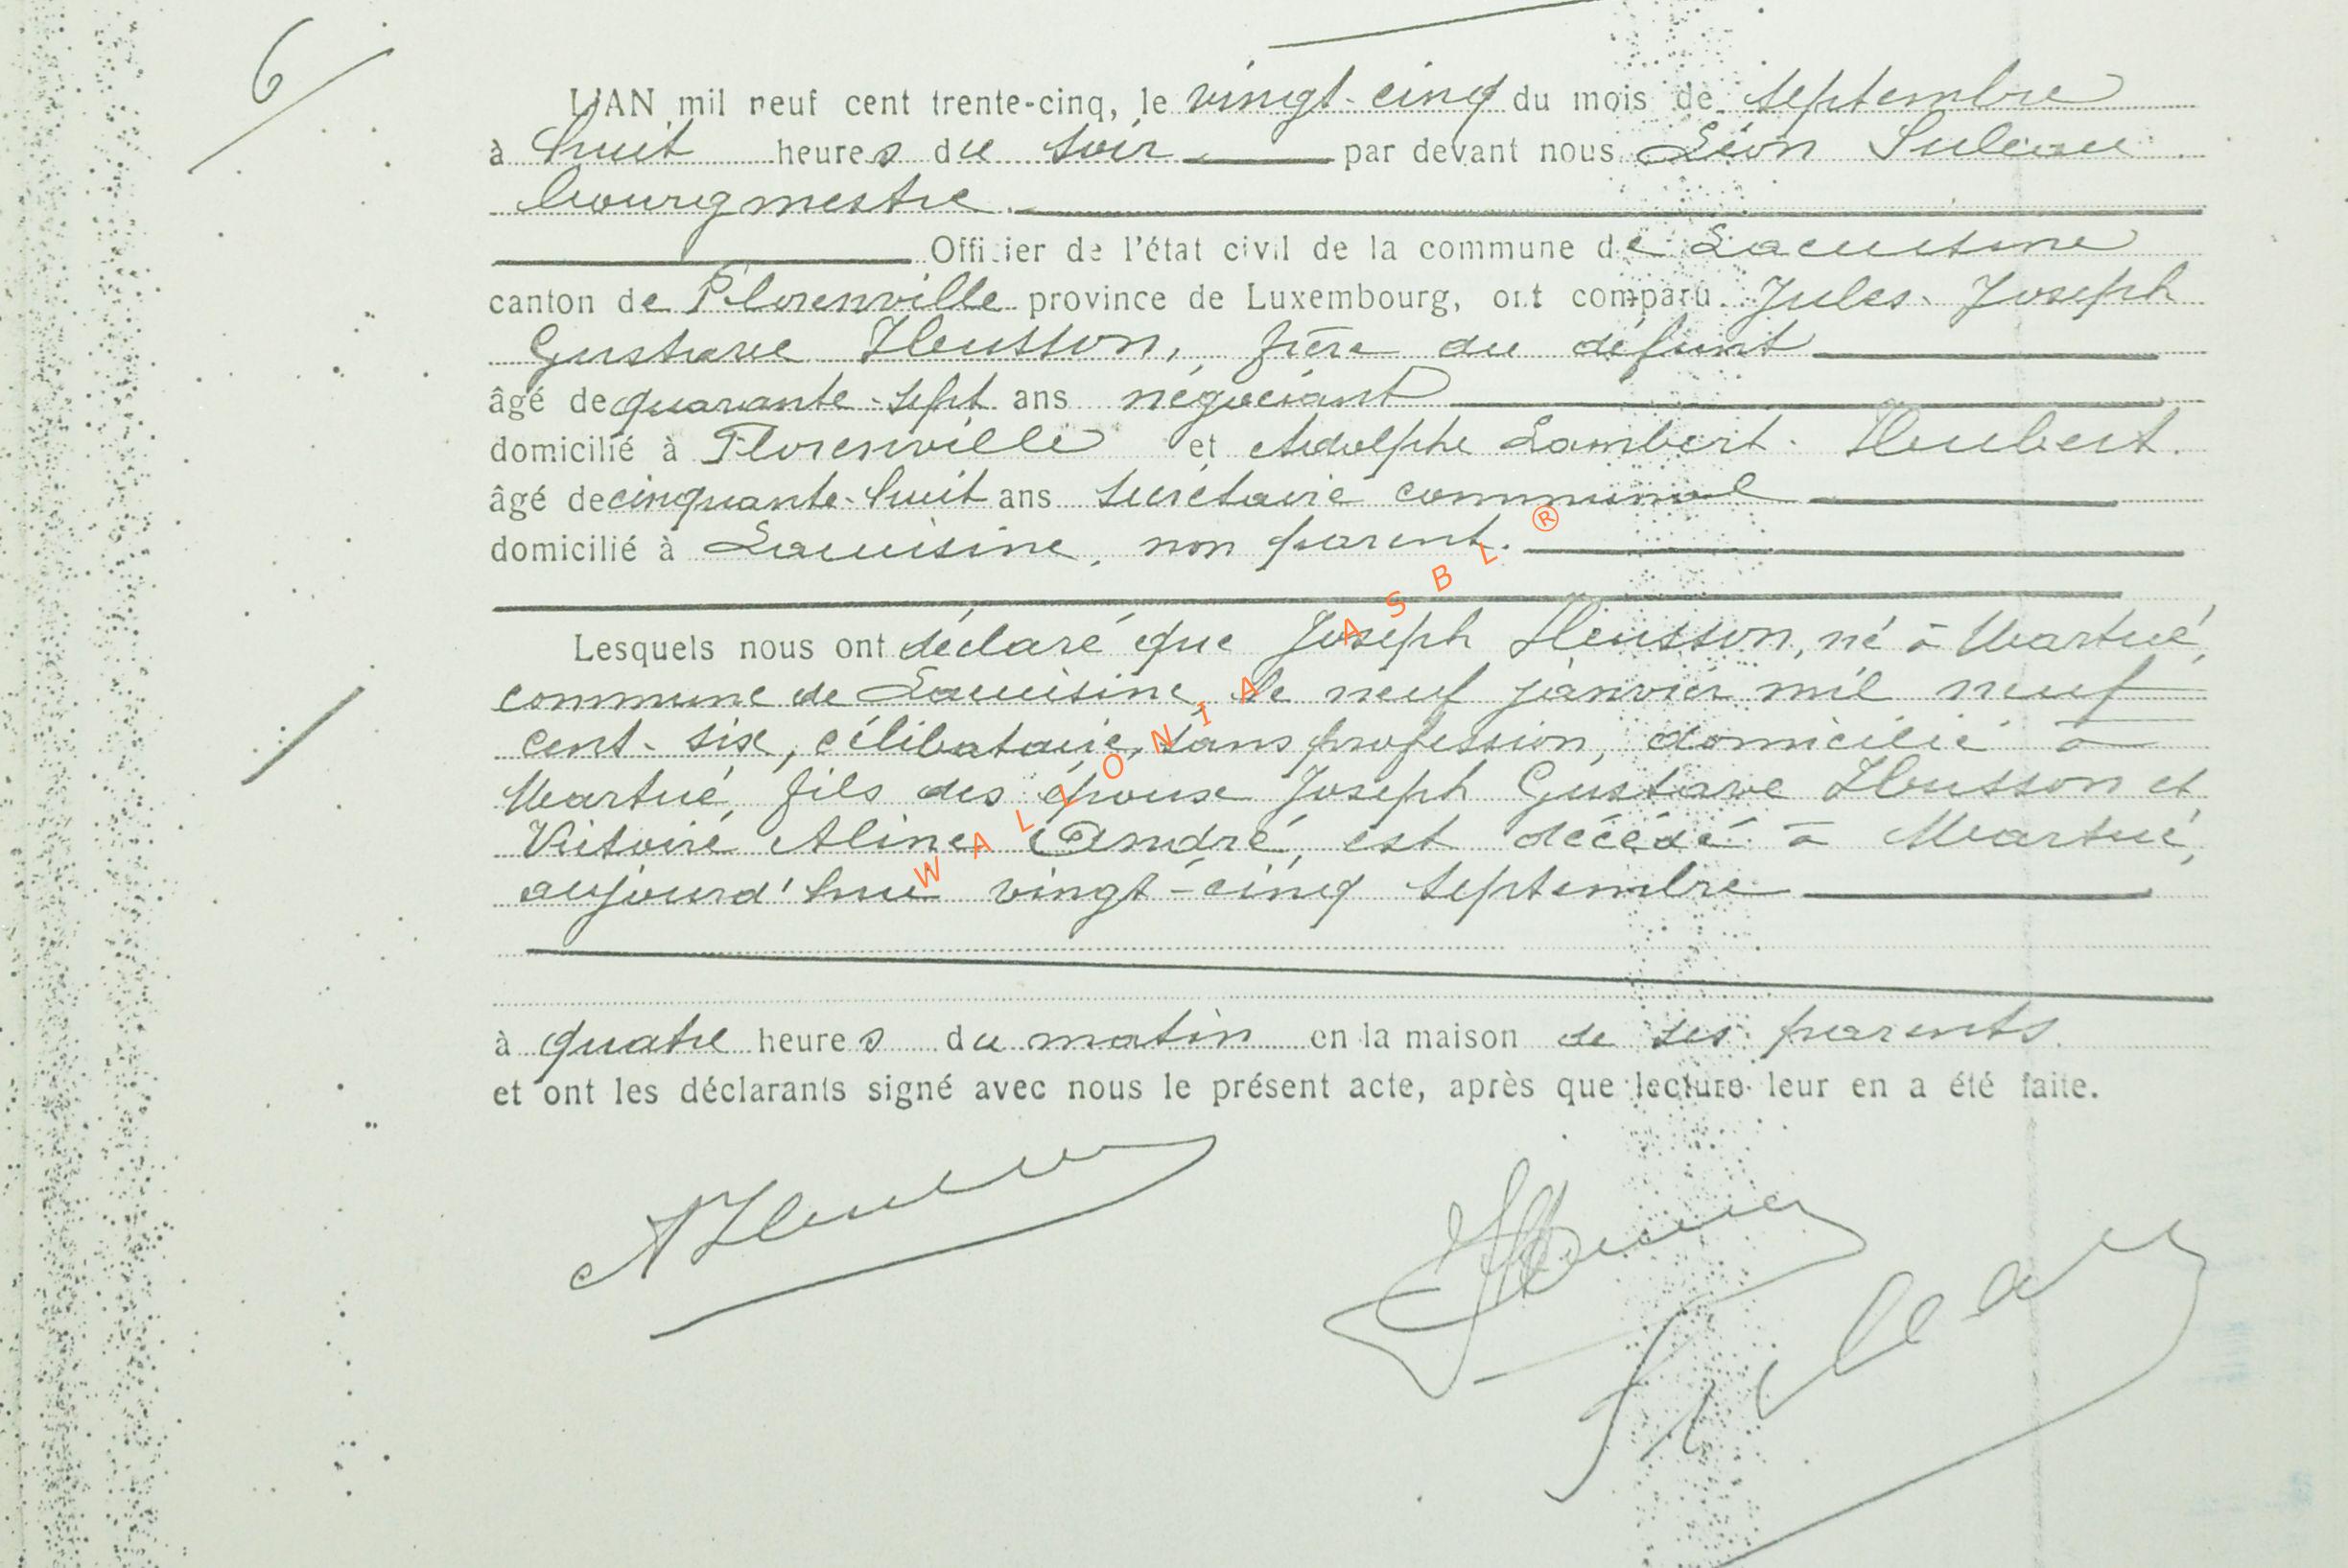 6
L'AN mil neuf cent trente-cinq, le vingt-cinq du mois de septembre
à huit heures du soir par devant nous Léon Suleau
bourgmestre.
Officier de l'état civil de la commune de Lacuisine
canton de Florenville province de Luxembourg, ont comparu Jules Joseph
Gustave Husson, frère du défunt
âgé de quarante-sept ans négociant
domicilié à Florenville et Adolphe Lambert Hubert.
âgé de cinquante-huit ans secrétaire communal
domicilié à Lacuisine, non parent.
Lesquels nous ont déclaré que Joseph Husson, né à Martué,
commune de Lacuisine, le neuf janvier mil neuf
cent-six, célibataire, sans profession, domicilié à
Martué, fils des époux Joseph Gustave Husson et
Victoire Aline André, est décédé à Martué,
aujourd'hui vingt-cinq septembre
à quatre heures du matin en la maison de ses parents.
et ont les déclarants signé avec nous le présent acte, après que lecture leur en a été faite.
WALLONIA ASBL ®